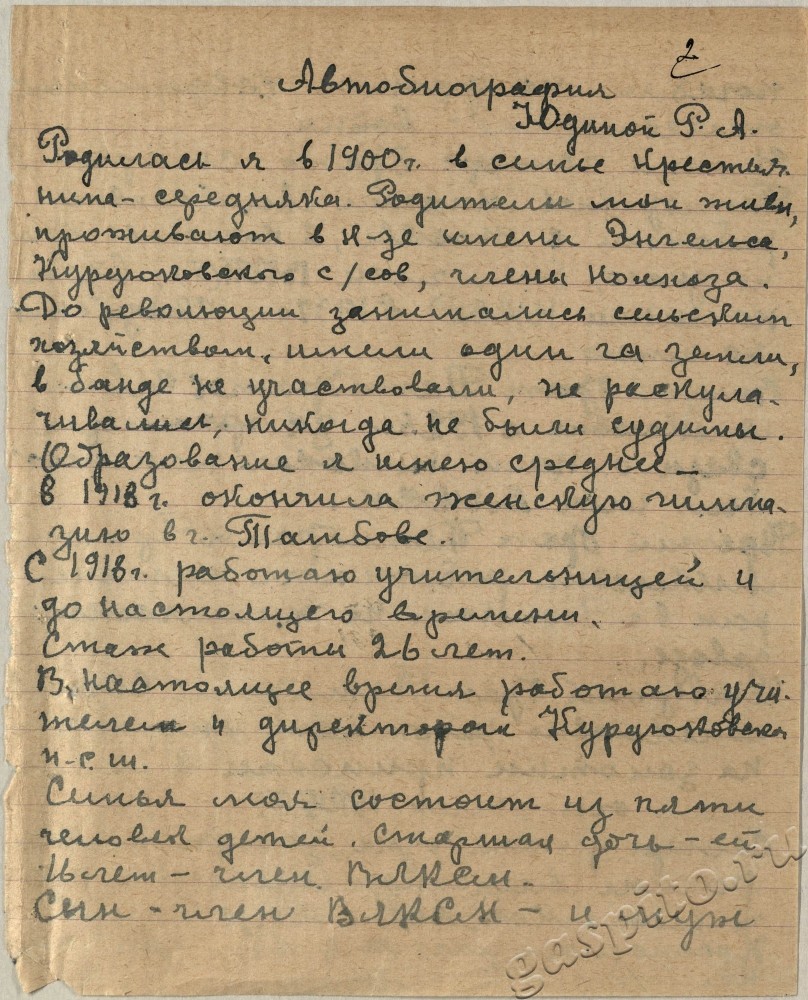 2
Автобиография
Юдиной Р. А.
Родилась я в 1900 г. в семье крестья-
нина-середняка. Родители мои живы,
проживают в к-зе имени Энгельса,
Курдюковского с/сов, члены колхоза.
До революции занимались сельским
хозяйством, имели один га земли,
в банде не участвовали, не раскула-
чивались, никогда не были судимы.
Образование я имею среднее –
в 1918 г. окончила женскую гимна-
зию в г. Тамбове.
С 1918 г. работаю учительницей и
до настоящего времени.
Стаж работы 26 лет.
В настоящее время работаю учи-
телем и директором Курдюковской
н.с.ш.
Семья моя состоит из пяти
человек детей. Старшая дочь – ей
16 лет – член ВЛКСМ.
Сын – член ВЛКСМ – и муж
gaspito.ru